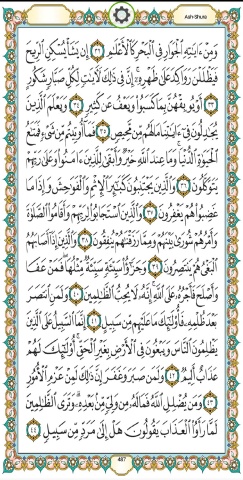 Ash-Shura
وَمِنْ ءَايَٰتِهِ ٱلْجَوَارِ فِى ٱلْبَحْرِ كَٱلْأَعْلَٰمِ ٣٢ إِن يَشَأْ يُسْكِنِ ٱلرِّيحَ
فَيَظْلَلْنَ رَوَاكِدَ عَلَىٰ ظَهْرِهِۦٓ إِنَّ فِى ذَٰلِكَ لَءَايَٰتٍ لِّكُلِّ صَبَّارٍ شَكُورٍ
٣٣ أَوْ يُوبِقْهُنَّ بِمَا كَسَبُوا۟ وَيَعْفُ عَن كَثِيرٍ ٣٤ وَيَعْلَمَ ٱلَّذِينَ
يُجَٰدِلُونَ فِىٓ ءَايَٰتِنَا مَا لَهُم مِّن مَّحِيصٍ ٣٥ فَمَآ أُوتِيتُم مِّن شَىْءٍ فَمَتَٰعُ
ٱلْحَيَوٰةِ ٱلدُّنْيَا وَمَا عِندَ ٱللَّهِ خَيْرٌ وَأَبْقَىٰ لِلَّذِينَ ءَامَنُوا۟ وَعَلَىٰ رَبِّهِمْ
يَتَوَكَّلُونَ ٣٦ وَٱلَّذِينَ يَجْتَنِبُونَ كَبَٰٓئِرَ ٱلْإِثْمِ وَٱلْفَوَٰحِشَ وَإِذَا مَا
غَضِبُوا۟ هُمْ يَغْفِرُونَ ٣٧ وَٱلَّذِينَ ٱسْتَجَابُوا۟ لِرَبِّهِمْ وَأَقَامُوا۟ ٱلصَّلَوٰةَ
وَأَمْرُهُمْ شُورَىٰ بَيْنَهُمْ وَمِمَّا رَزَقْنَٰهُمْ يُنفِقُونَ ٣٨ وَٱلَّذِينَ إِذَآ أَصَابَهُمُ
ٱلْبَغْىُ هُمْ يَنتَصِرُونَ ٣٩ وَجَزَٰٓؤُا۟ سَيِّئَةٍ سَيِّئَةٌ مِّثْلُهَا فَمَنْ عَفَا
وَأَصْلَحَ فَأَجْرُهُۥ عَلَى ٱللَّهِ إِنَّهُۥ لَا يُحِبُّ ٱلظَّٰلِمِينَ ٤٠ وَلَمَنِ ٱنتَصَرَ
بَعْدَ ظُلْمِهِۦ فَأُو۟لَٰٓئِكَ مَا عَلَيْهِم مِّن سَبِيلٍ ٤١ إِنَّمَا ٱلسَّبِيلُ عَلَى ٱلَّذِينَ
يَظْلِمُونَ ٱلنَّاسَ وَيَبْغُونَ فِى ٱلْأَرْضِ بِغَيْرِ ٱلْحَقِّ أُو۟لَٰٓئِكَ لَهُمْ
عَذَابٌ أَلِيمٌ ٤٢ وَلَمَن صَبَرَ وَغَفَرَ إِنَّ ذَٰلِكَ لَمِنْ عَزْمِ ٱلْأُمُورِ
٤٣ وَمَن يُضْلِلِ ٱللَّهُ فَمَا لَهُۥ مِن وَلِىٍّ مِّنۢ بَعْدِهِۦ وَتَرَى ٱلظَّٰلِمِينَ
لَمَّا رَأَوُا۟ ٱلْعَذَابَ يَقُولُونَ هَلْ إِلَىٰ مَرَدٍّ مِّن سَبِيلٍ ٤٤
487